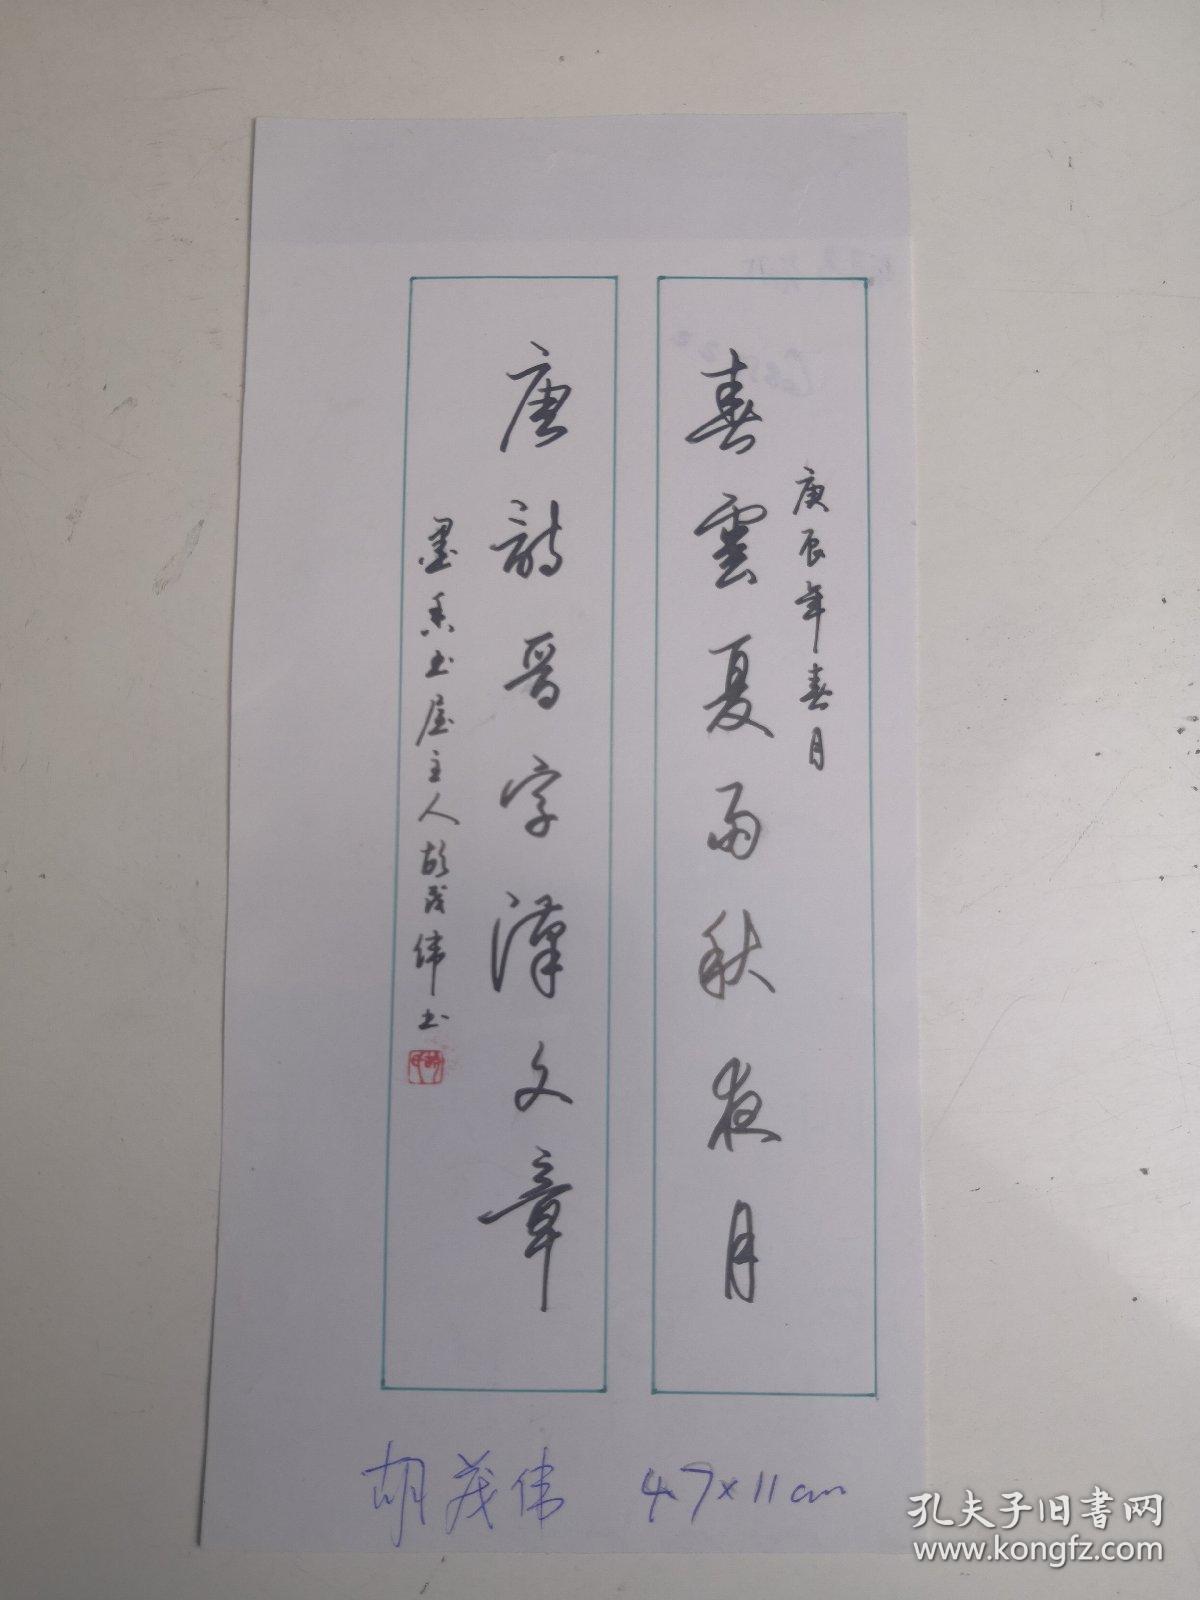 庚辰年春月
春雲夏雨秋夜月
唐詩晉字漢文章
墨香书屋主人胡茂偉书
胡茂伟 4.7×11cm
孔夫子旧书网
www.kongfz.com